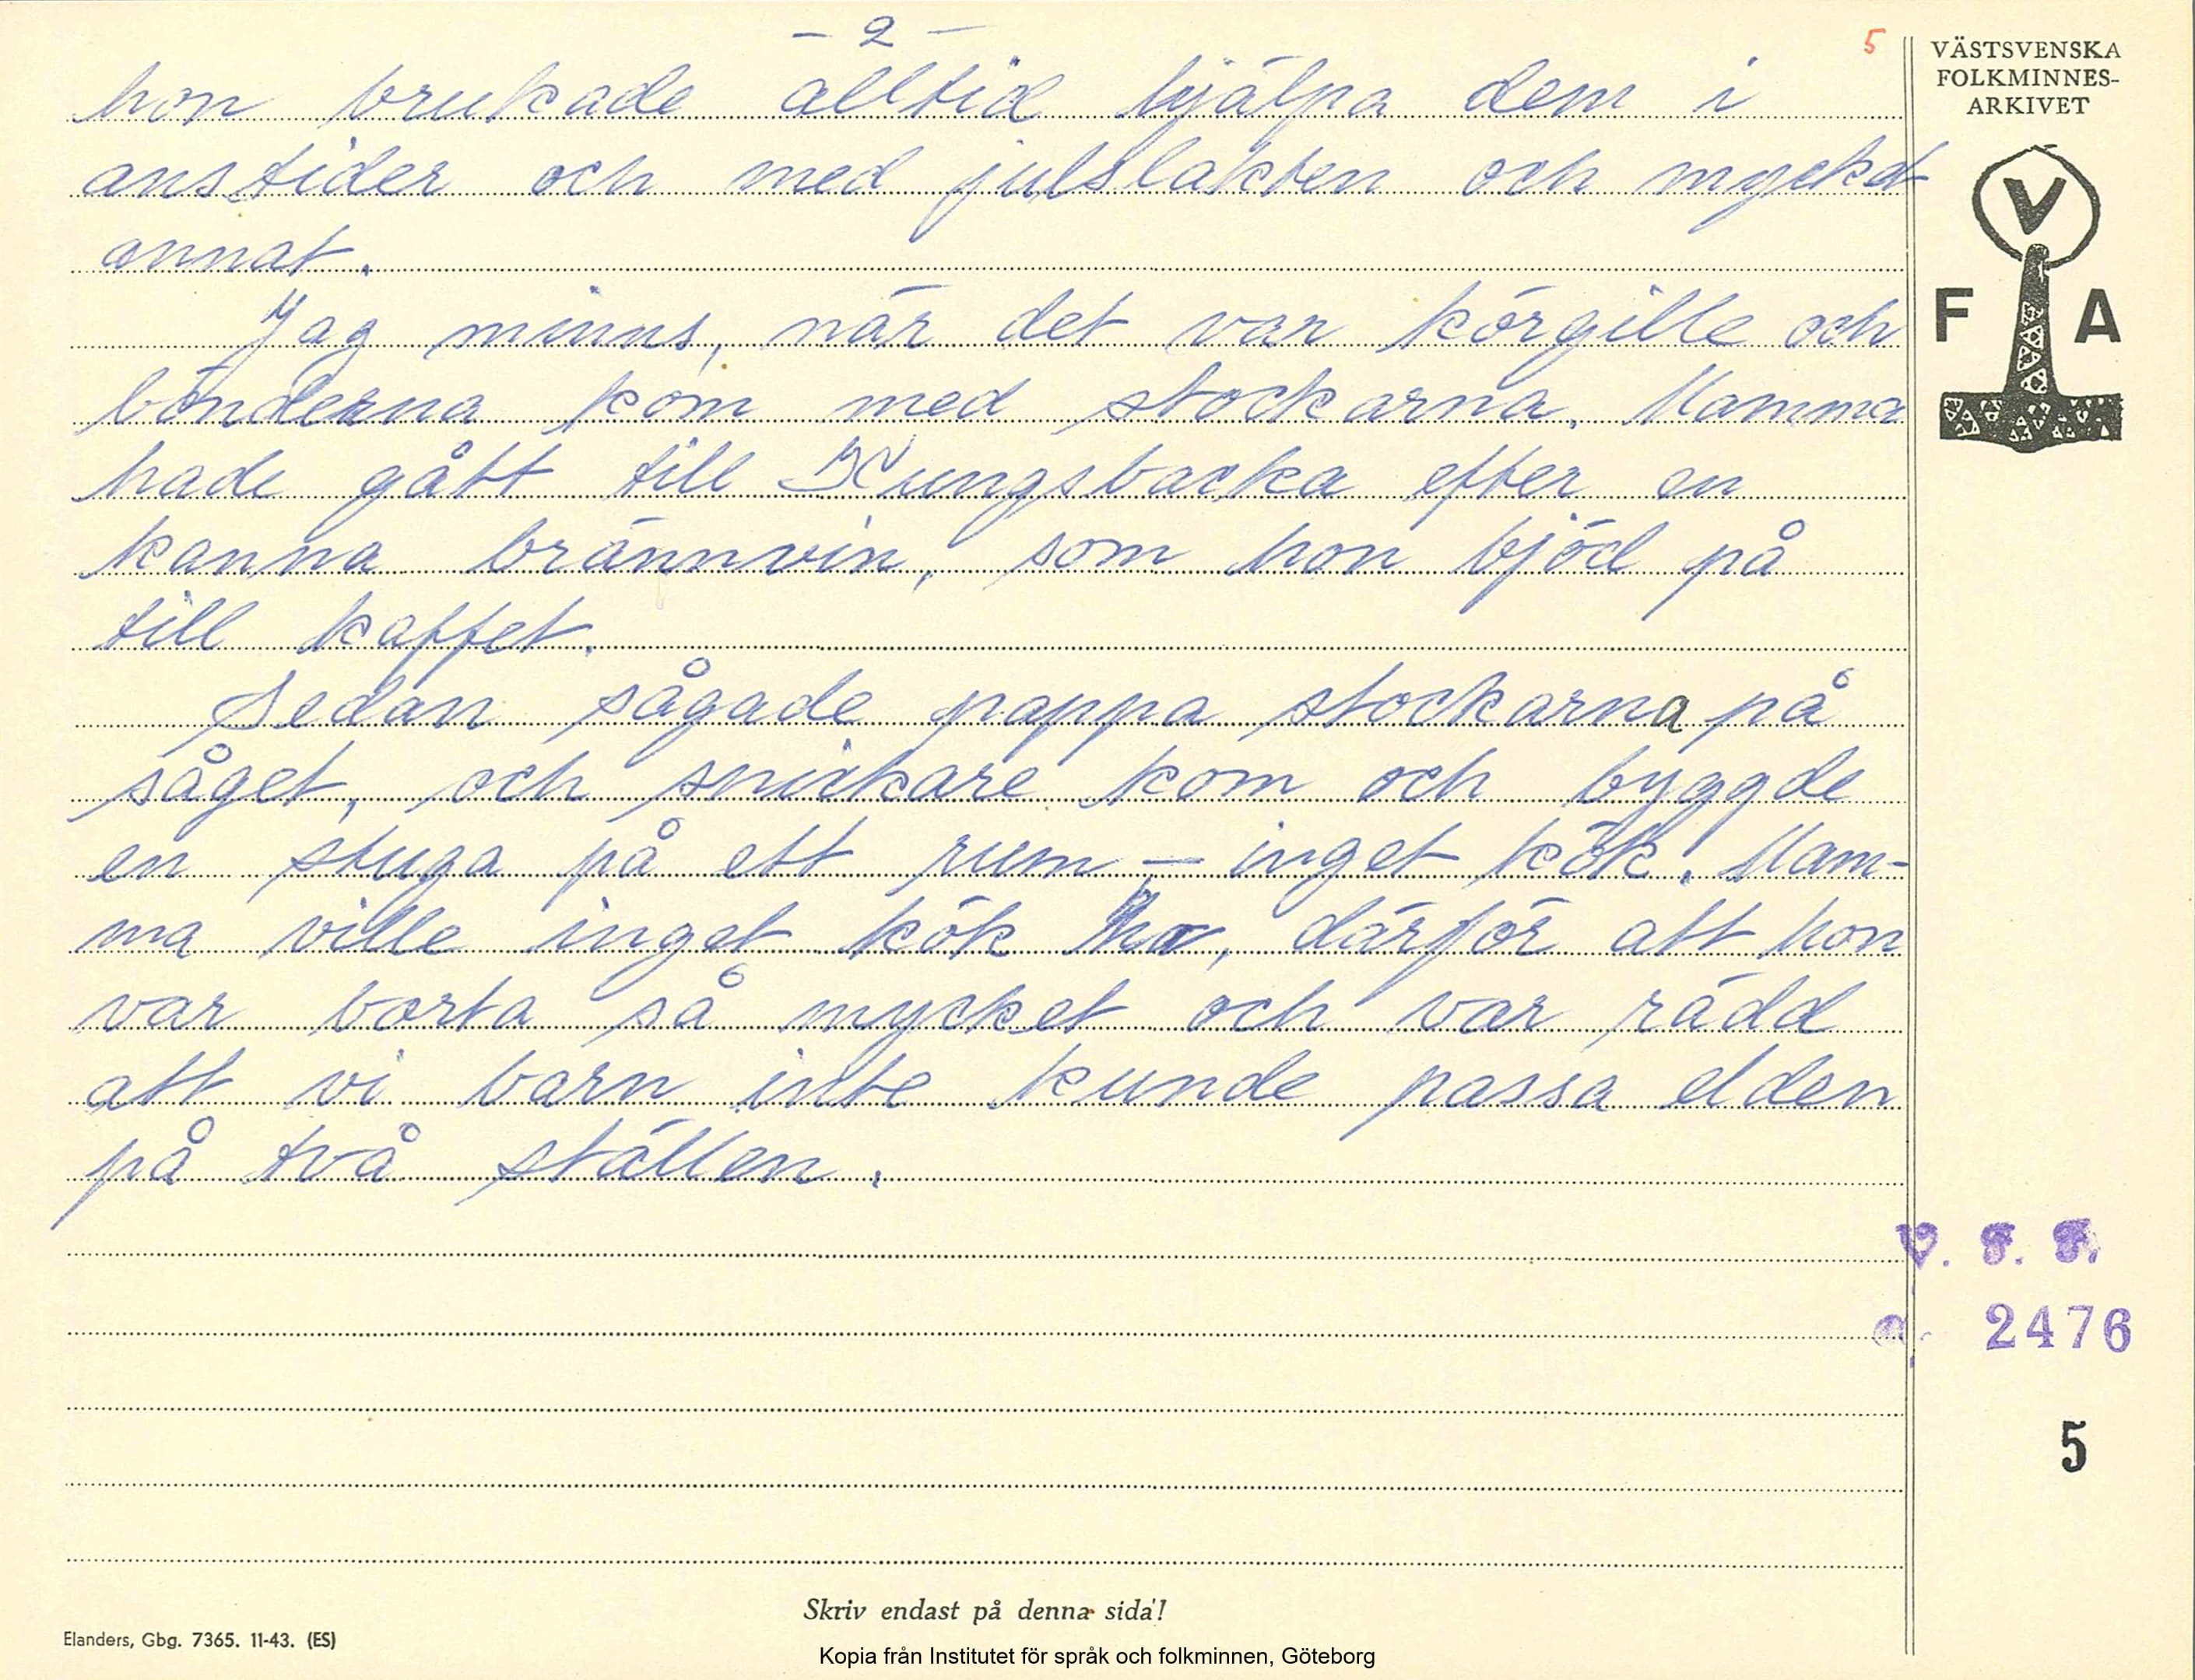 - 2 -
5
hon brukade alltid hjälpa dem i
anstider och med julslakten och mycket
annat.
Jag minns, när det var körgille och
bönderna kom med stockarna. Mamma
hade gått till Kungsbacka efter en
kanna brännvin, som hon bjöd på
till kaffet.
Sedan sågade pappa stockarna på
såget, och snickare kom och byggde
en stuga på ett rum – inget kök. Mam-
ma ville inget kök ha, därför att hon
var borta så mycket och var rädd
att vi barn inte kunde passa elden
på två ställen.
VÄSTSVENSKA
FOLKMINNES-
ARKIVET
V
F A
V. F. F.
2476
5
Skriv endast på denna sida!
Elanders, Gbg. 7365. 11-43. (ES)
Kopia från Institutet för språk och folkminnen, Göteborg